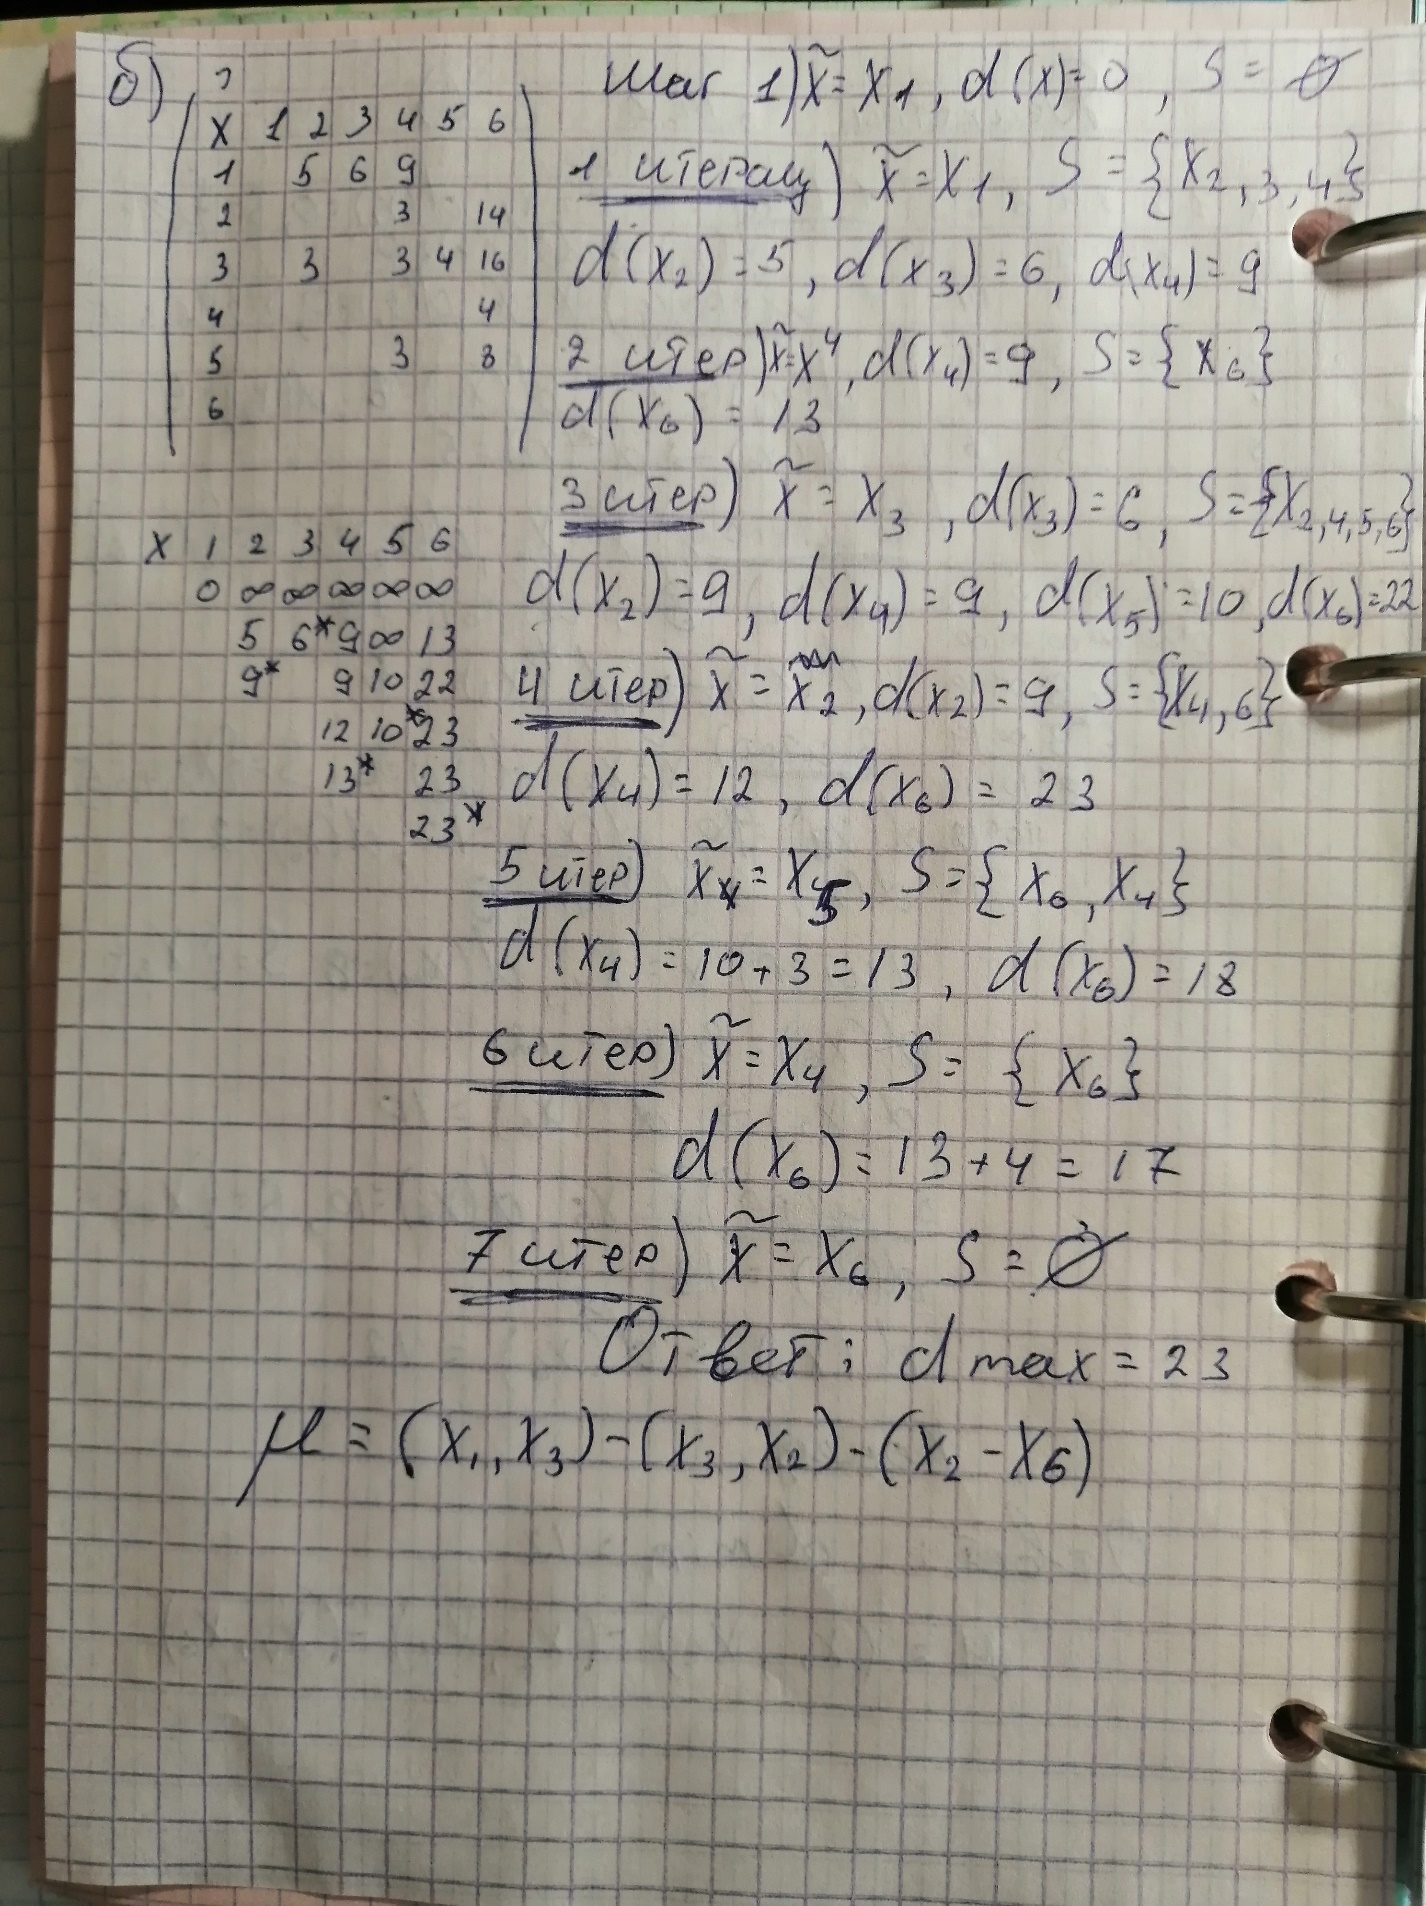 б)
X 1 2 3 4 5 6
1 5 6 9
2 3 14
3 3 3 4 16
4 4
5 3 8
6
Шаг 1) x̃ = X1, d(x)=0, S = ∅
1 итерац) x̃ = X1, S = {X2,3,4}
d(x2) = 5, d(x3) = 6, d(x4) = 9
2 итер) x̃=X4, d(x4) = 9, S = {X6}
d(X6) = 13
3 итер) x̃ = X3, d(x3) = 6, S = {X2,4,5,6}
d(x2) = 9, d(x4) = 9, d(x5) = 10, d(x6) = 22
4 итер) x̃ = X2, d(x2) = 9, S = {X4,6}
d(x4) = 12, d(x6) = 23
X 1 2 3 4 5 6
0 ∞ ∞ ∞ ∞ ∞
5 6* 9 ∞ 13
9* 9 10 22
12 10* 23
13* 23
23*
5 итер) x̃ = X5, S = {X6, X4}
d(x4) = 10+3 = 13, d(x6) = 18
6 итер) x̃ = X4, S = {X6}
d(x6) = 13+4 = 17
7 итер) x̃ = X6, S = ∅
Ответ: d max = 23
μ = (X1, X3) - (X3, X2) - (X2 - X6)